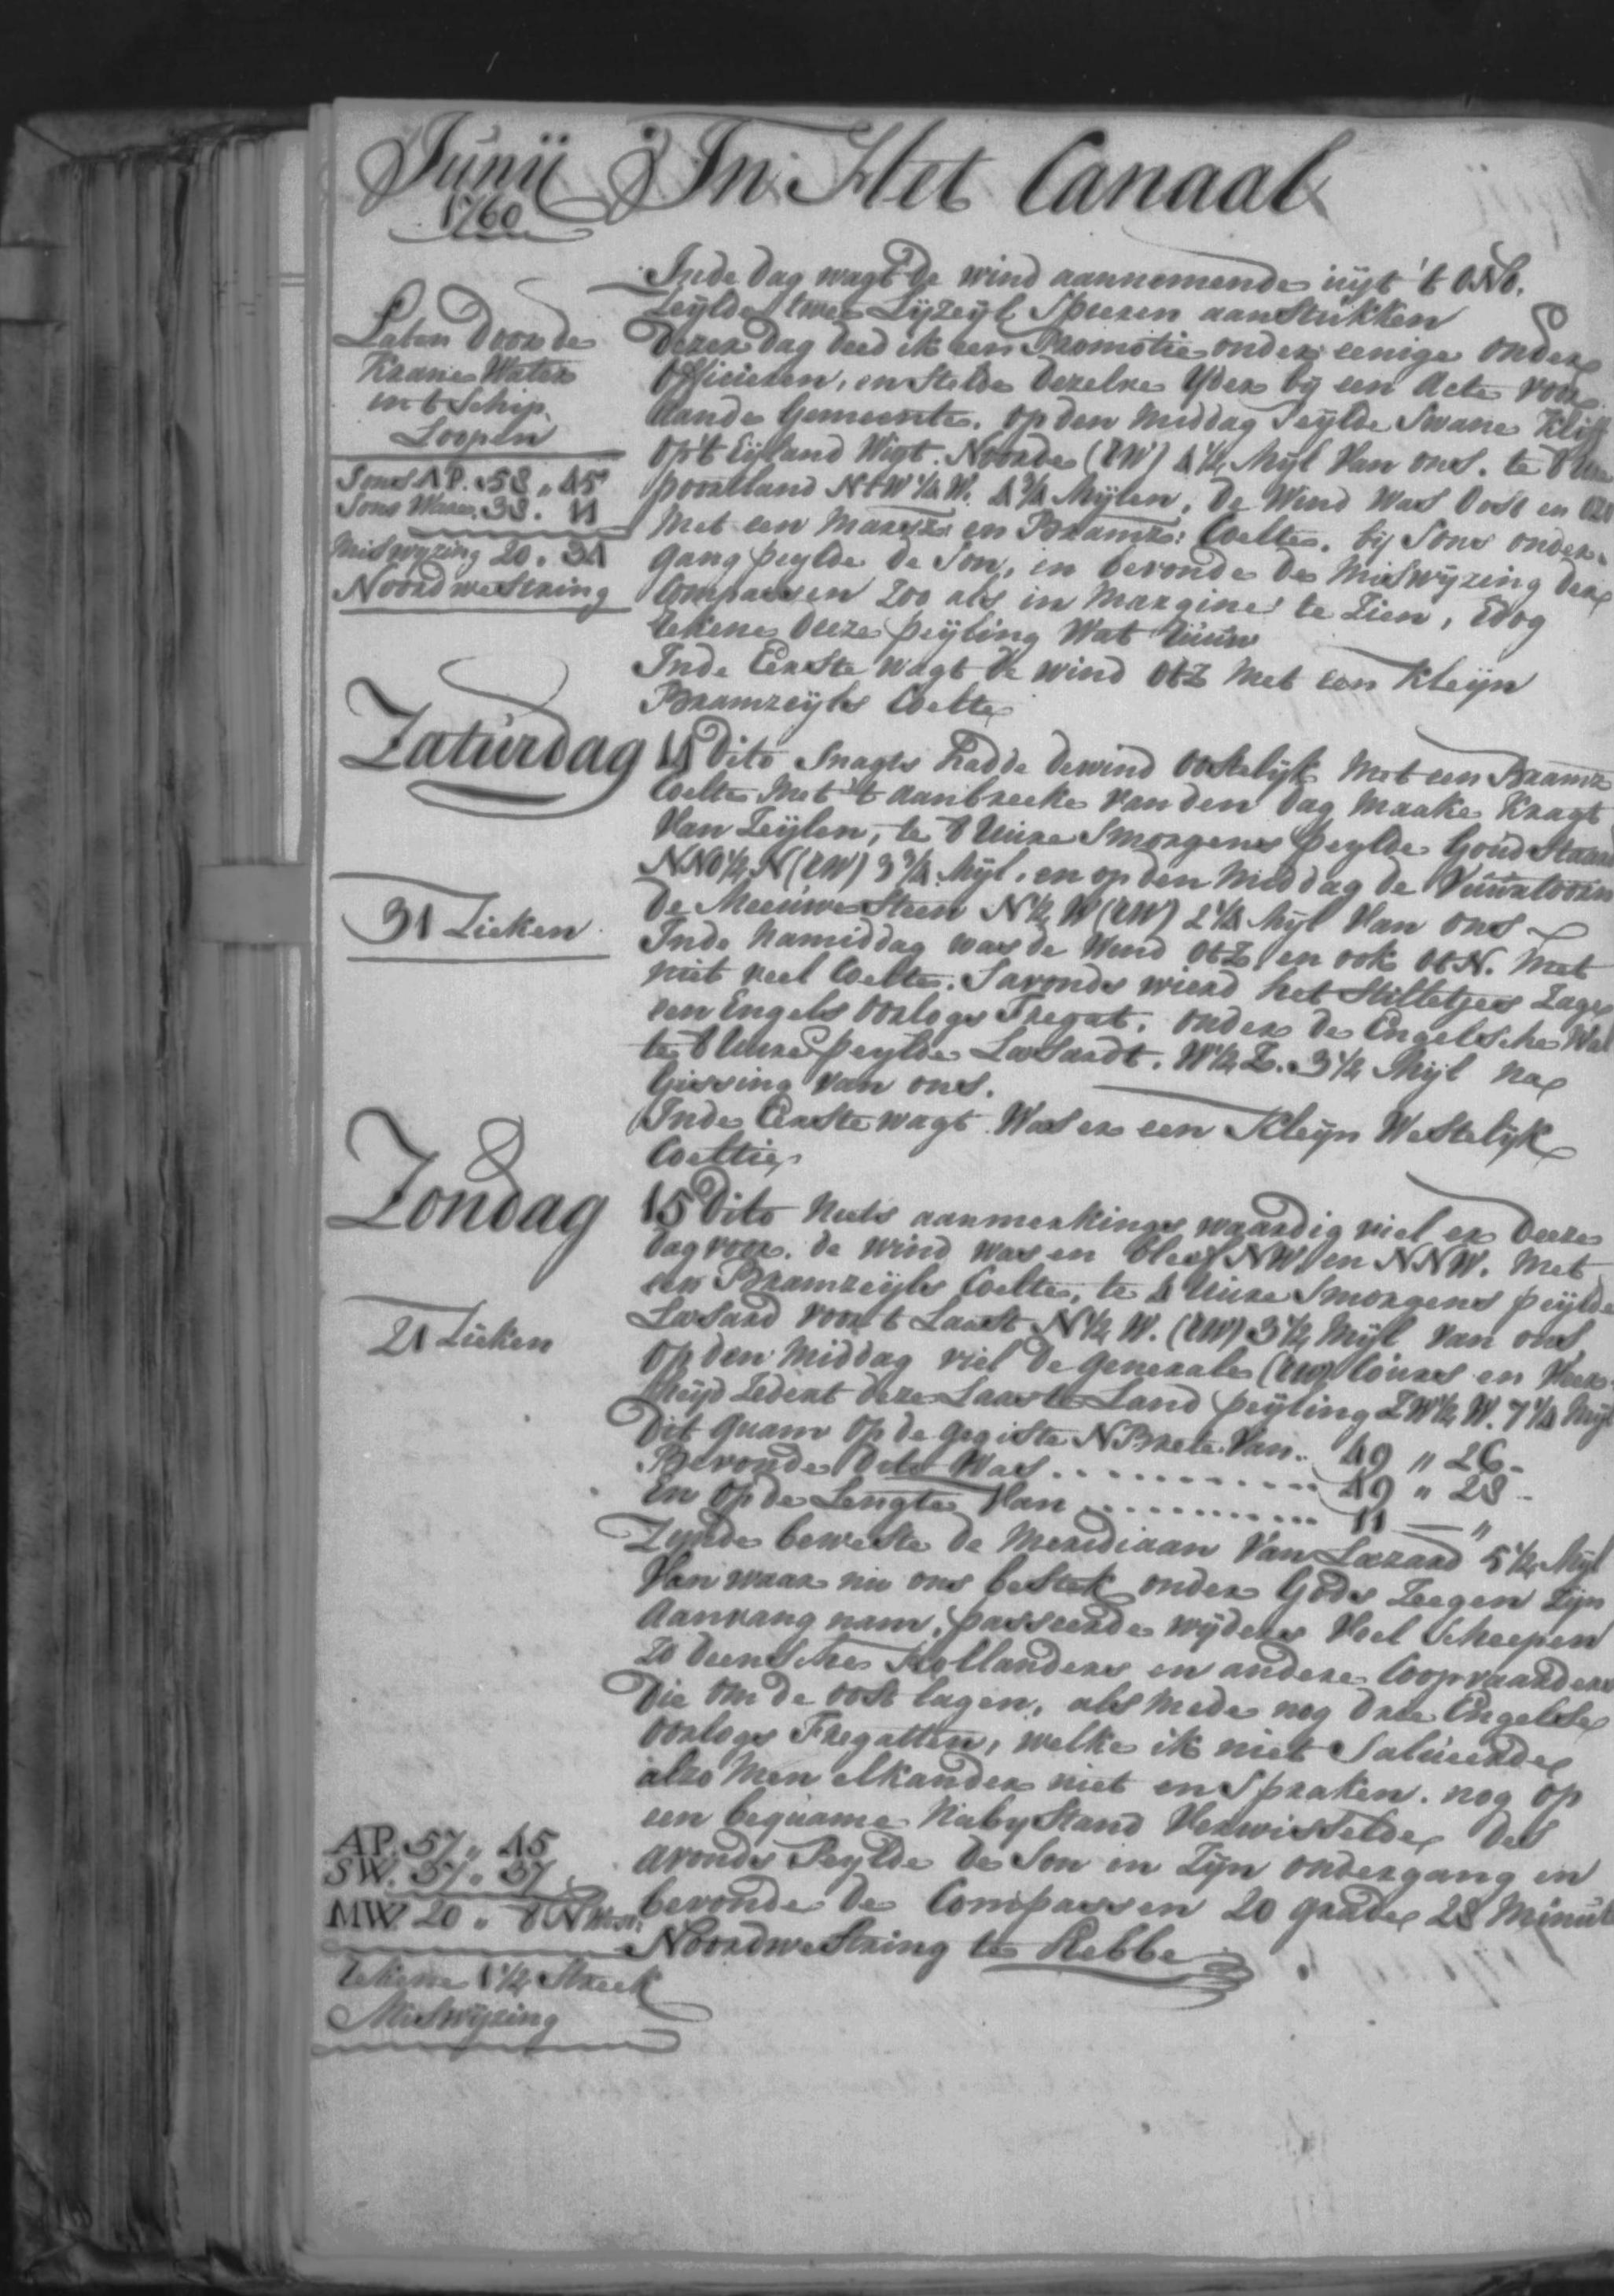 Junii
1760
In Het Canaal
Inde dag wagt de wind aannemende uijt 't ONO.
Zeylde twee Lyzeyl Spieren aan Stukken
Dezer dag deed ik een Promotie onder eenige onder
Officieren, en Stelde dezelve Yder bij een Acte voor
aande Gemeente. op den middag Peylde Swane Kliff
op't Eyland Wigt. Noorde (RW) 4½ Myl van ons. te 8 Uure
poortland NtW¼W. 4¾ Mylen, de Wind Was Oost en
Met een Marsz: en Bramz: Coelte. bij Sons onder-
gang peylde de Son, en bevonde de Miswyzing der
Compassen Zoo als in Margine te Zien, Edog
tekene deeze peyling Wat Ruuw
Inde Eerste wagt de wind OtZ Met een Kleyn
Bramzeyls Coelte
Laten Door de
Krane Water
in t Schip
Loopen
Sons AP. 58 " 45
Sons Ware. 38. 11
Miswyzing 20. 34
Noordwestering
Zaturdag
14 Dito Snagts hadde de wind Oostelyk Met een Bramz
Coelte Met 't aanbreeke van den dag Maake Kragt
Van Zeylen, te 8 Uure Smorgens peylde Goudstaart
NNO½N (RW) 3¾ Myl. en op den Middag de Vuurtooren
De Meeuwe Steen N½W (RW) 2¼ Myl Van ons
31 Zieken
Inde Namiddag was de Wind OtZ en ook OtN. Met
niet veel Coelte. Savonds wierd het Stilletjes Zage
een Engels Oorlogs Fregat. onder de Engelsche Wal
te 8 Uure peylde Lasardt. W½Z. 3½ Myl na
Gissing van ons.
Inde Eerste wagt Was er een Kleyn Westelyk
Coeltie
Zondag
15 Dito Niets aanmerkings waardig viel er deeze
dag voor. de wind was en bleef NW. en NNW. Met
een Bramzeyls Coelte, te 4 Uure Smorgens peylde
Lasard voor t Laast N½W. (RW) 3½ Myl van ons
21 Zieken
Op den Middag viel de generale (RW) Cours en Veer-
heyd Zedert deze Laaste Land peyling ZW½W. 7¼ Myl
Dit quam op de gegiste NBrete Van.. 49 " 26-
Bevonde dito Was .......... 49 " 28-
En op de Lengte Van .......... 11 — "
Zynde beweste de Meridiaan Van Lazard 5½ Myl
Van waar nu ons bestek onder Gods Zeegen Zyn
Aanvang nam, passeerde wyders Veel Scheepen
Zo Deensche Hollanders en andere Coopvaarders
Die om de oost lagen, als Mede nog drie Engelse
Oorlogs Fregatten, welke ik niet Salueerde
alzo Men elkander niet en Spraken. nog op
een bequame Naby Stand Verwisselde des
avonds Peylde de Son in Zyn ondergang en
bevonde de Compassen 20 grade 28 Minut
Noordwestering te Hebbe
AP. 57 " 45
SW. 37 " 37
MW. 20 " 8 NWest:
tekene 1½ Streek
Miswyzing